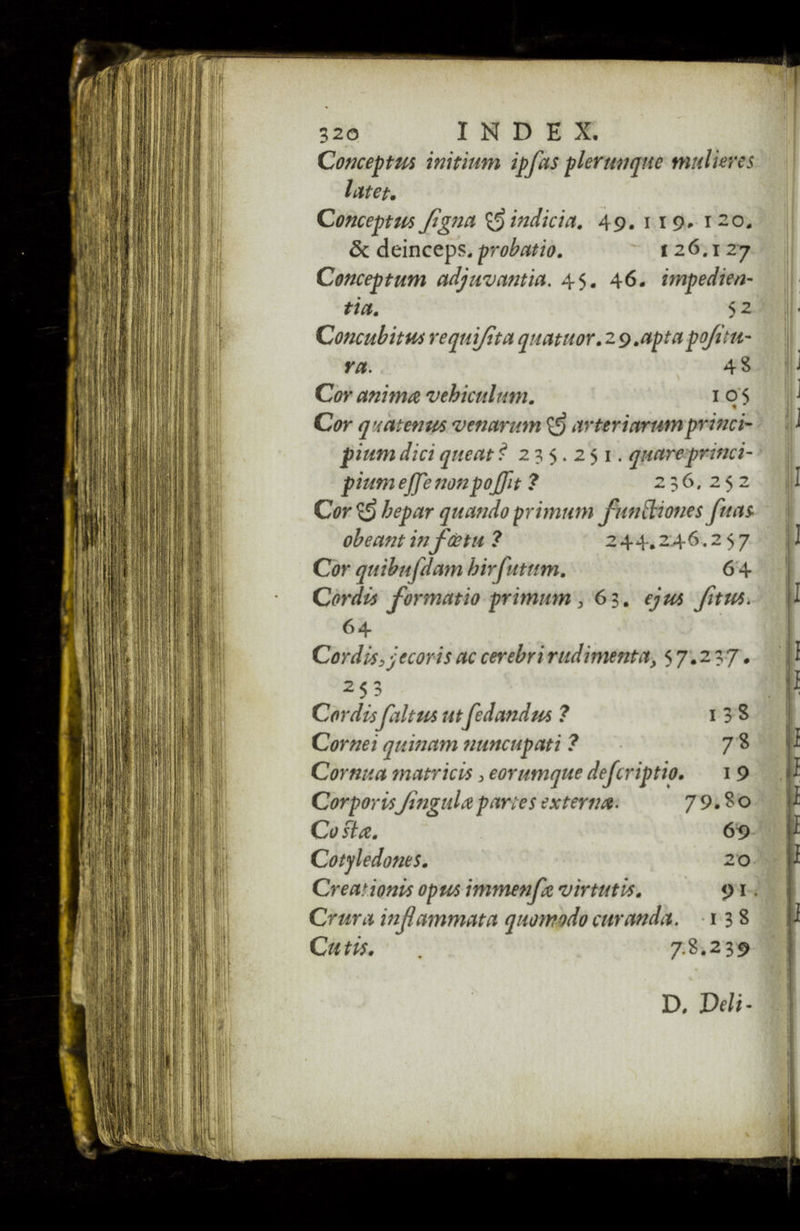 320 INDEX.
Conceptus initium ipſas plerunque mulieres
latet.
Conceptus ſigna & indicia. 49. 119. 120.
& deinceps. probatio. 126.127
Conceptum adjuvantia. 45. 46. impedien-
tia. 52
Concubitus requiſita quatuor. 29. apta poſitu-
ra. 48
Cor animæ vehiculum. 105
Cor quatenus venarum & arteriarum princi-
pium dici queat? 235. 251. quare princi-
pium eſſe non poſſit? 236. 252
Cor & hepar quando primum functiones ſuas
obeant in fœtu? 244. 246. 257
Cor quibuſdam hirſutum. 64
Cordis formatio primum, 63. ejus ſitus.
64
Cordis, jecoris ac cerebri rudimenta, 57. 237.
253
Cordis ſaltus ut ſedandus? 138
Cornei quinam nuncupati? 78
Cornua matricis, eorumque deſcriptio. 19
Corporis ſingulæ partes externæ. 79. 80
Coſtæ. 69
Cotyledones. 20
Creationis opus immenſæ virtutis. 91.
Crura inflammata quomodo curanda. 138
Cutis. 78. 239
D. Deli-